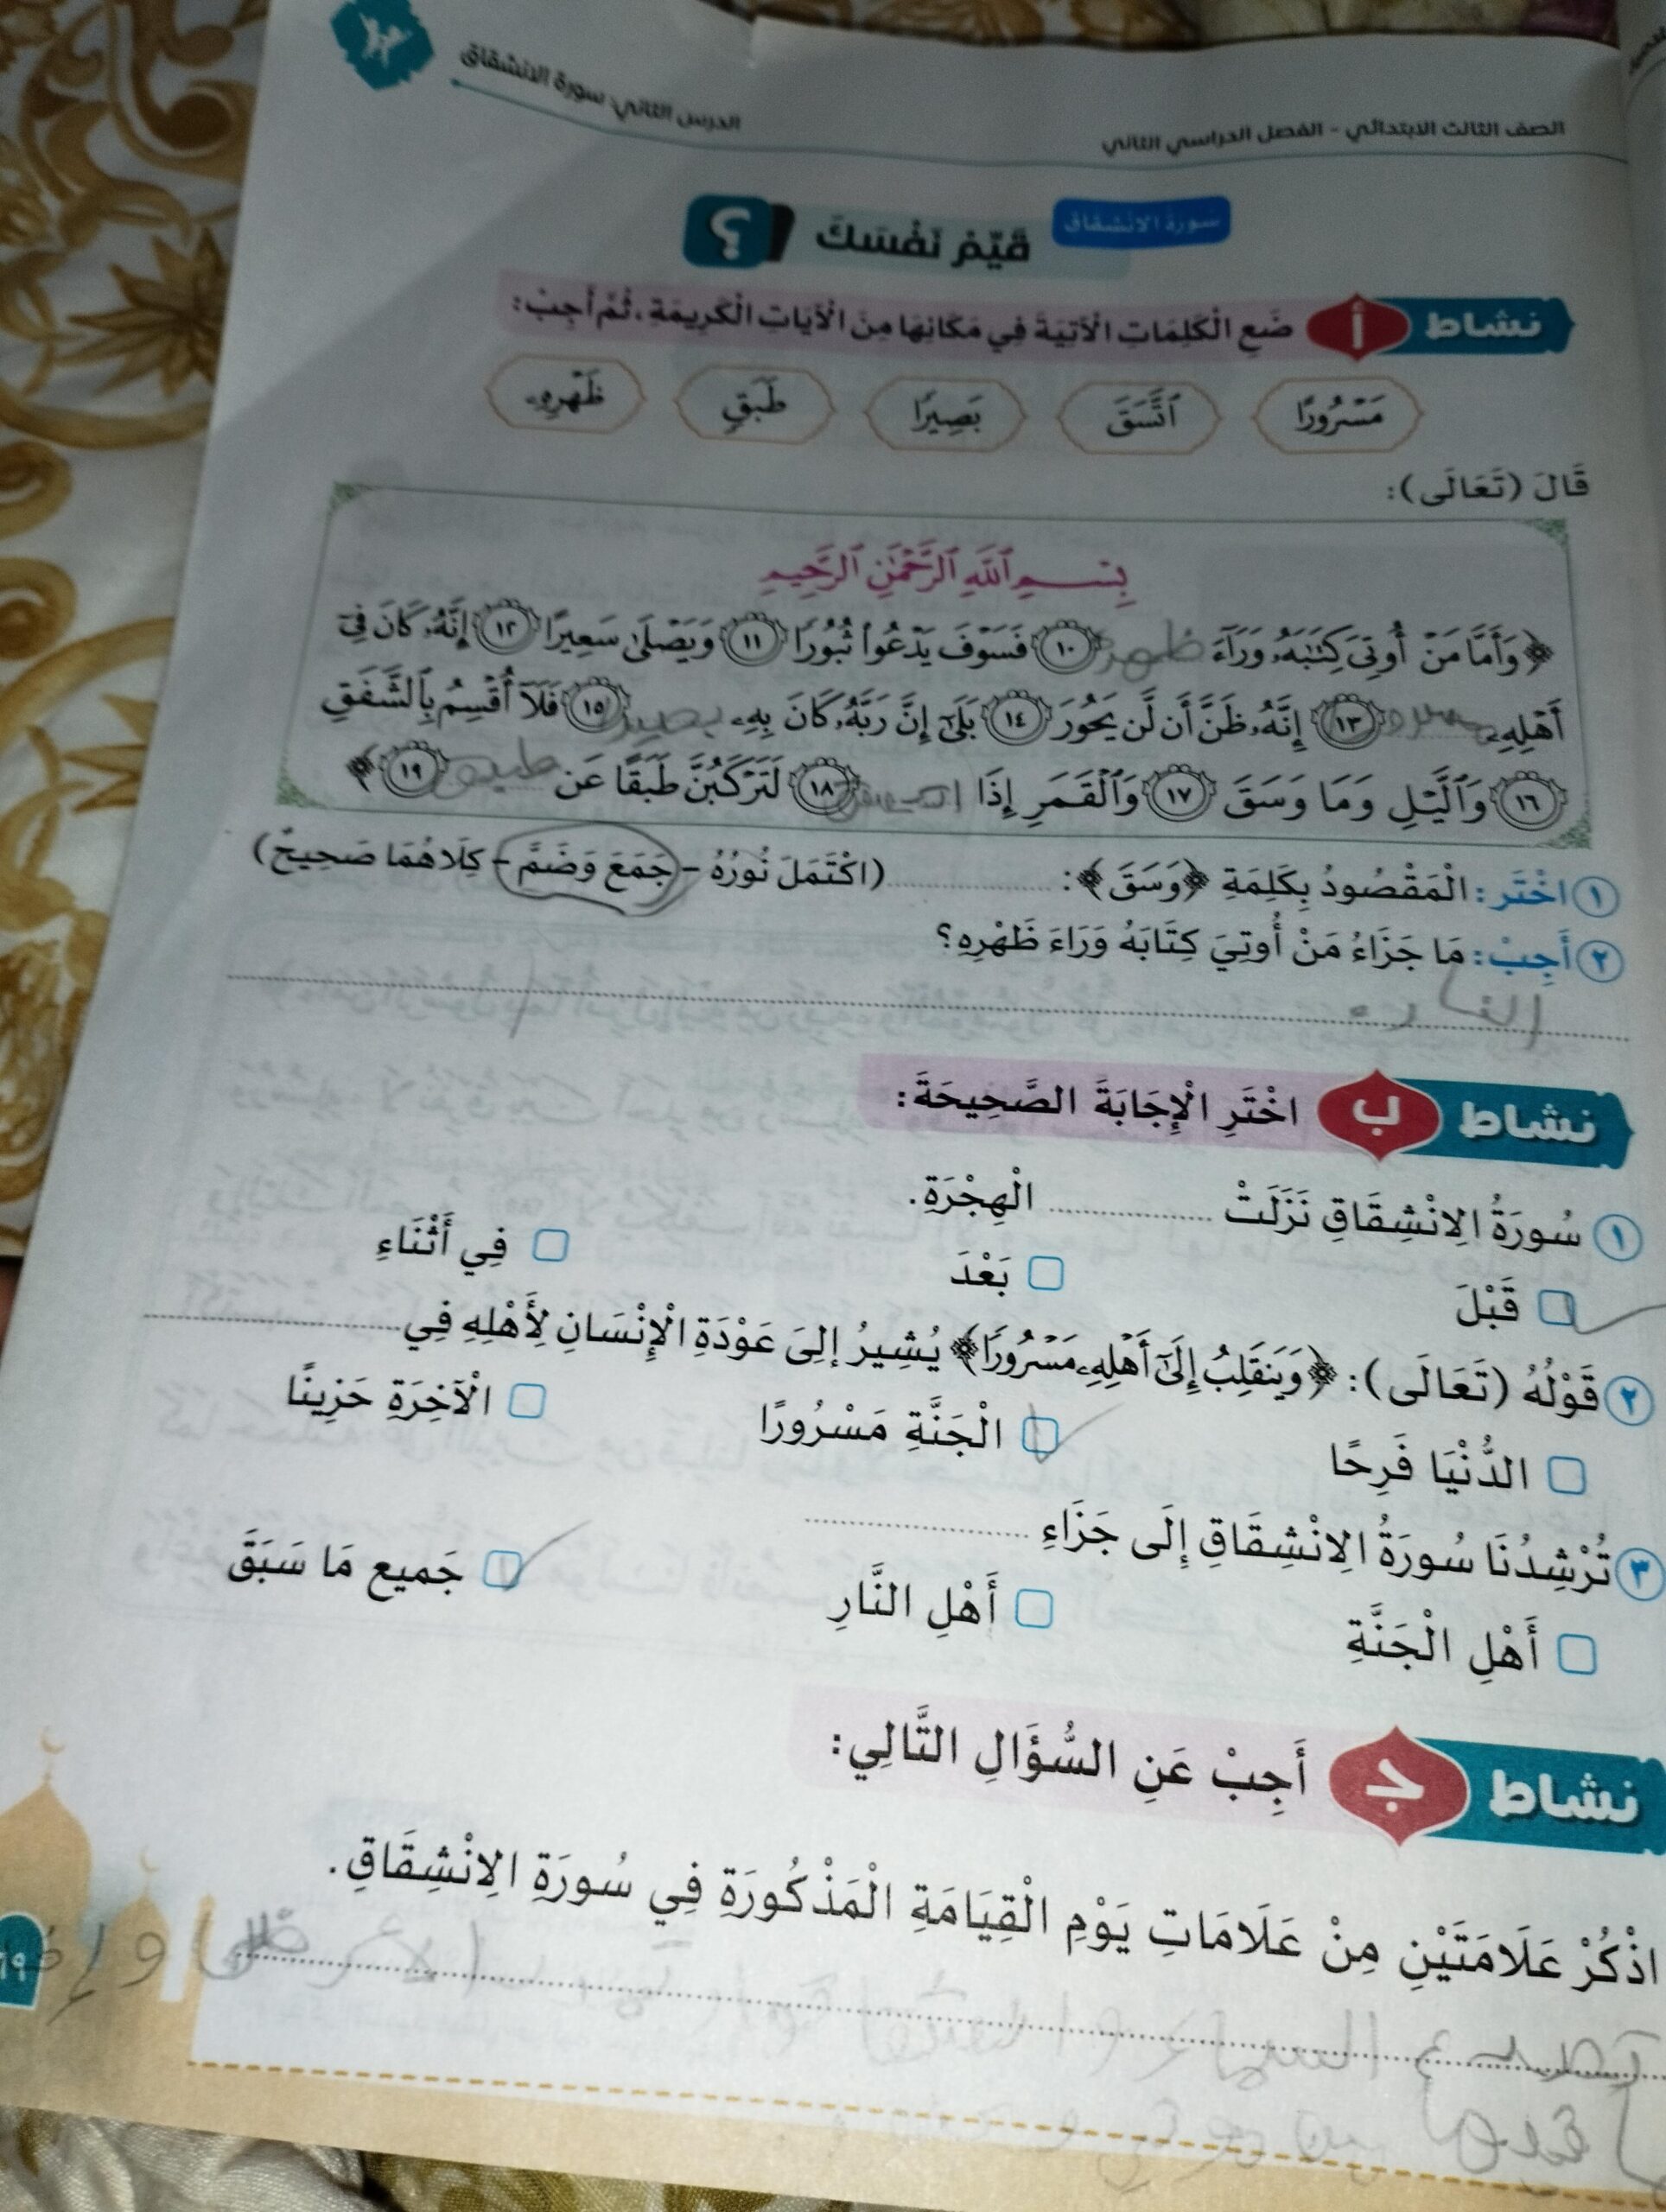 الصف الثالث الابتدائي - الفصل الدراسي الثاني
الدرس الثاني: سورة الانشقاق
سورة الانشقاق
قَيِّمْ نَفْسَكَ ؟
نشاط أ ضَعِ الْكَلِمَاتِ الْآتِيَةَ فِي مَكَانِهَا مِنَ الْآيَاتِ الْكَرِيمَةِ، ثُمَّ أَجِبْ:
مَسْرُورًا ٱتَّسَقَ بَصِيرًا طَبَقٍ ظَهْرِهِۦ
قَالَ (تَعَالَى):
بِسْمِ ٱللَّهِ ٱلرَّحْمَٰنِ ٱلرَّحِيمِ
﴿وَأَمَّا مَنْ أُوتِىَ كِتَٰبَهُۥ وَرَآءَ ظهره ١٠ فَسَوْفَ يَدْعُوا۟ ثُبُورًا ١١ وَيَصْلَىٰ سَعِيرًا ١٢ إِنَّهُۥ كَانَ فِىٓ
أَهْلِهِۦ مسرورا ١٣ إِنَّهُۥ ظَنَّ أَن لَّن يَحُورَ ١٤ بَلَىٰٓ إِنَّ رَبَّهُۥ كَانَ بِهِۦ بصيرا ١٥ فَلَآ أُقْسِمُ بِٱلشَّفَقِ
١٦ وَٱلَّيْلِ وَمَا وَسَقَ ١٧ وَٱلْقَمَرِ إِذَا اتسق ١٨ لَتَرْكَبُنَّ طَبَقًا عَن طبق ١٩﴾
١ اخْتَر: الْمَقْصُودُ بِكَلِمَةِ ﴿وَسَقَ﴾: .......... (اكْتَمَلَ نُورُهُ - جَمَعَ وَضَمَّ - كِلَاهُمَا صَحِيحٌ)
٢ أَجِبْ: مَا جَزَاءُ مَنْ أُوتِيَ كِتَابَهُ وَرَاءَ ظَهْرِهِ؟
نشاط ب اخْتَرِ الْإِجَابَةَ الصَّحِيحَةَ:
١ سُورَةُ الِانْشِقَاقِ نَزَلَتْ .......... الْهِجْرَةِ.
قَبْلَ بَعْدَ فِي أَثْنَاءِ
٢ قَوْلُهُ (تَعَالَى): ﴿وَيَنقَلِبُ إِلَىٰٓ أَهْلِهِۦ مَسْرُورًا﴾ يُشِيرُ إِلَى عَوْدَةِ الْإِنْسَانِ لِأَهْلِهِ فِي ..........
الدُّنْيَا فَرِحًا الْجَنَّةِ مَسْرُورًا الْآخِرَةِ حَزِينًا
٣ تُرْشِدُنَا سُورَةُ الِانْشِقَاقِ إِلَى جَزَاءِ ..........
أَهْلِ الْجَنَّةِ أَهْلِ النَّارِ جَمِيعِ مَا سَبَقَ
نشاط ج أَجِبْ عَنِ السُّؤَالِ التَّالِي:
اذْكُرْ عَلَامَتَيْنِ مِنْ عَلَامَاتِ يَوْمِ الْقِيَامَةِ الْمَذْكُورَةِ فِي سُورَةِ الِانْشِقَاقِ.
السماء الأرض
١٩